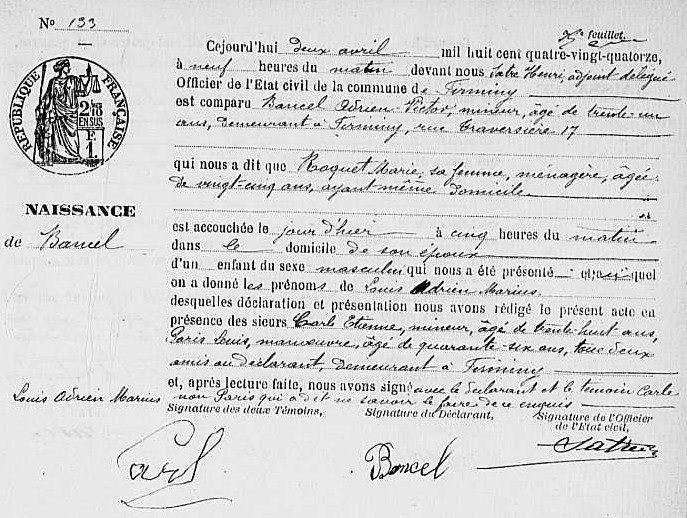 No 133
feuillet.
Cejourd'hui deux avril mil huit cent quatre-vingt-quatorze,
à neuf heures du matin devant nous Satre Henri, adjoint délégué
Officier de l'Etat civil de la commune de Firminy
est comparu Bancel Adrien-Victor, mineur, âgé de trente-un
ans, demeurant à Firminy, rue Traversière 17
qui nous a dit que Roquet Marie, sa femme, ménagère, âgée
de vingt-cinq ans, ayant même domicile
est accouchée le jour d'hier à cinq heures du matin
dans le domicile de son époux
d'un enfant du sexe masculin qui nous a été présenté et auquel
on a donné les prénoms de Louis Adrien Marius.
desquelles déclaration et présentation nous avons rédigé le présent acte en
présence des sieurs Carle Etienne, mineur, âgé de trente-huit ans,
Paris Louis, manœuvre, âgé de quarante-six ans, tous deux
amis au déclarant, demeurant à Firminy
et, après lecture faite, nous avons signé avec le déclarant et le témoin Carle
non Paris qui a dit ne savoir le faire de ce enquis
Signature des deux Témoins, Signature du Déclarant, Signature de l'Officier
de l'Etat civil,
Bancel
Satre
RÉPUBLIQUE FRANÇAISE
2/10
EN SUS
F.
1
NAISSANCE
de Bancel
Louis Adrien Marius